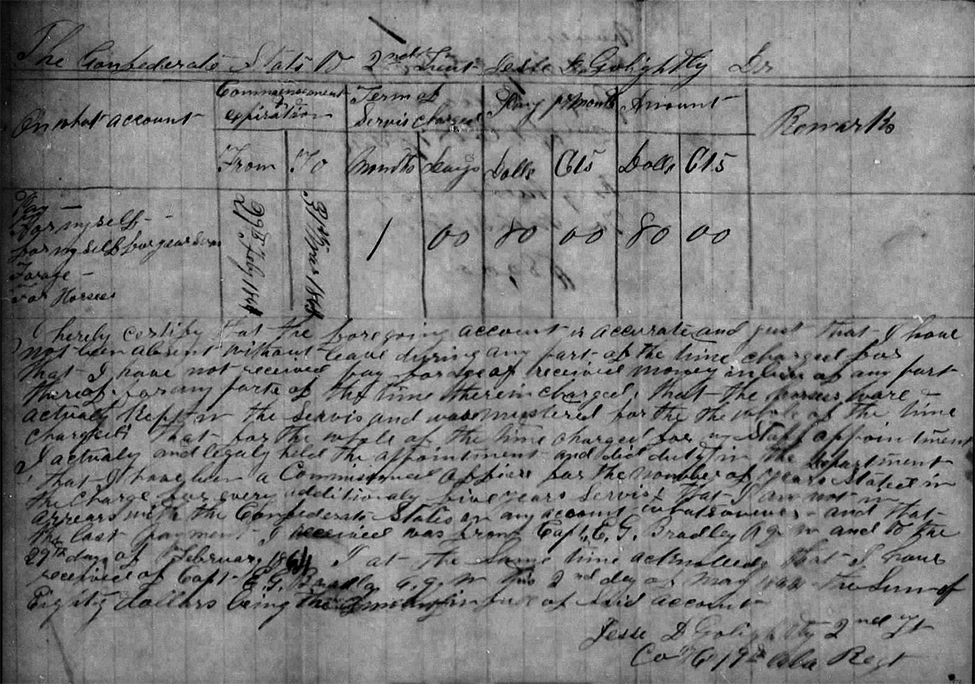 The Confederate States To 2nd Lieut Jesse D Golightly Dr
On what account
Commencement & expiration
Term of Servis charged
Pay pr Month
Amount
Remarks
From To Months Days Dolls Cts Dolls Cts
Pay —
For myself —
for myself for
Forage —
For Horses
29th Feby 1864
31st 1864
1 00 80 00 80 00
I hereby certify that the foregoing account is accurate and just that I have
not been absent without leave during any part of the time charged for
that I have not received pay forage or received money in lieu of any part
thereof for any parte of the time therein charged, that the horses ware
actualy Kept in the servis and ware mustered for the the whole of the time
charged; that for the whole of the time charged for my Staff appointment
I actualy and legaly held the appointment and did duty in the Department
that I have been a Commissioned officer for the number of years stated in
the charge for every additionaly five years servis that I am not in
arrears with the Confederate States on any account and that
the last payment I received was from Capt. E. G. Bradley A q m and to the
29th day of February 1864 I at the same time acknowledge that I have
received of Capt E G Bradley A. q. m this 2nd day of May 1864 the sum of
Eighty dollars being the in full of said account
Jesse D Golightly 2nd Lt
Co 19th Ala Regt